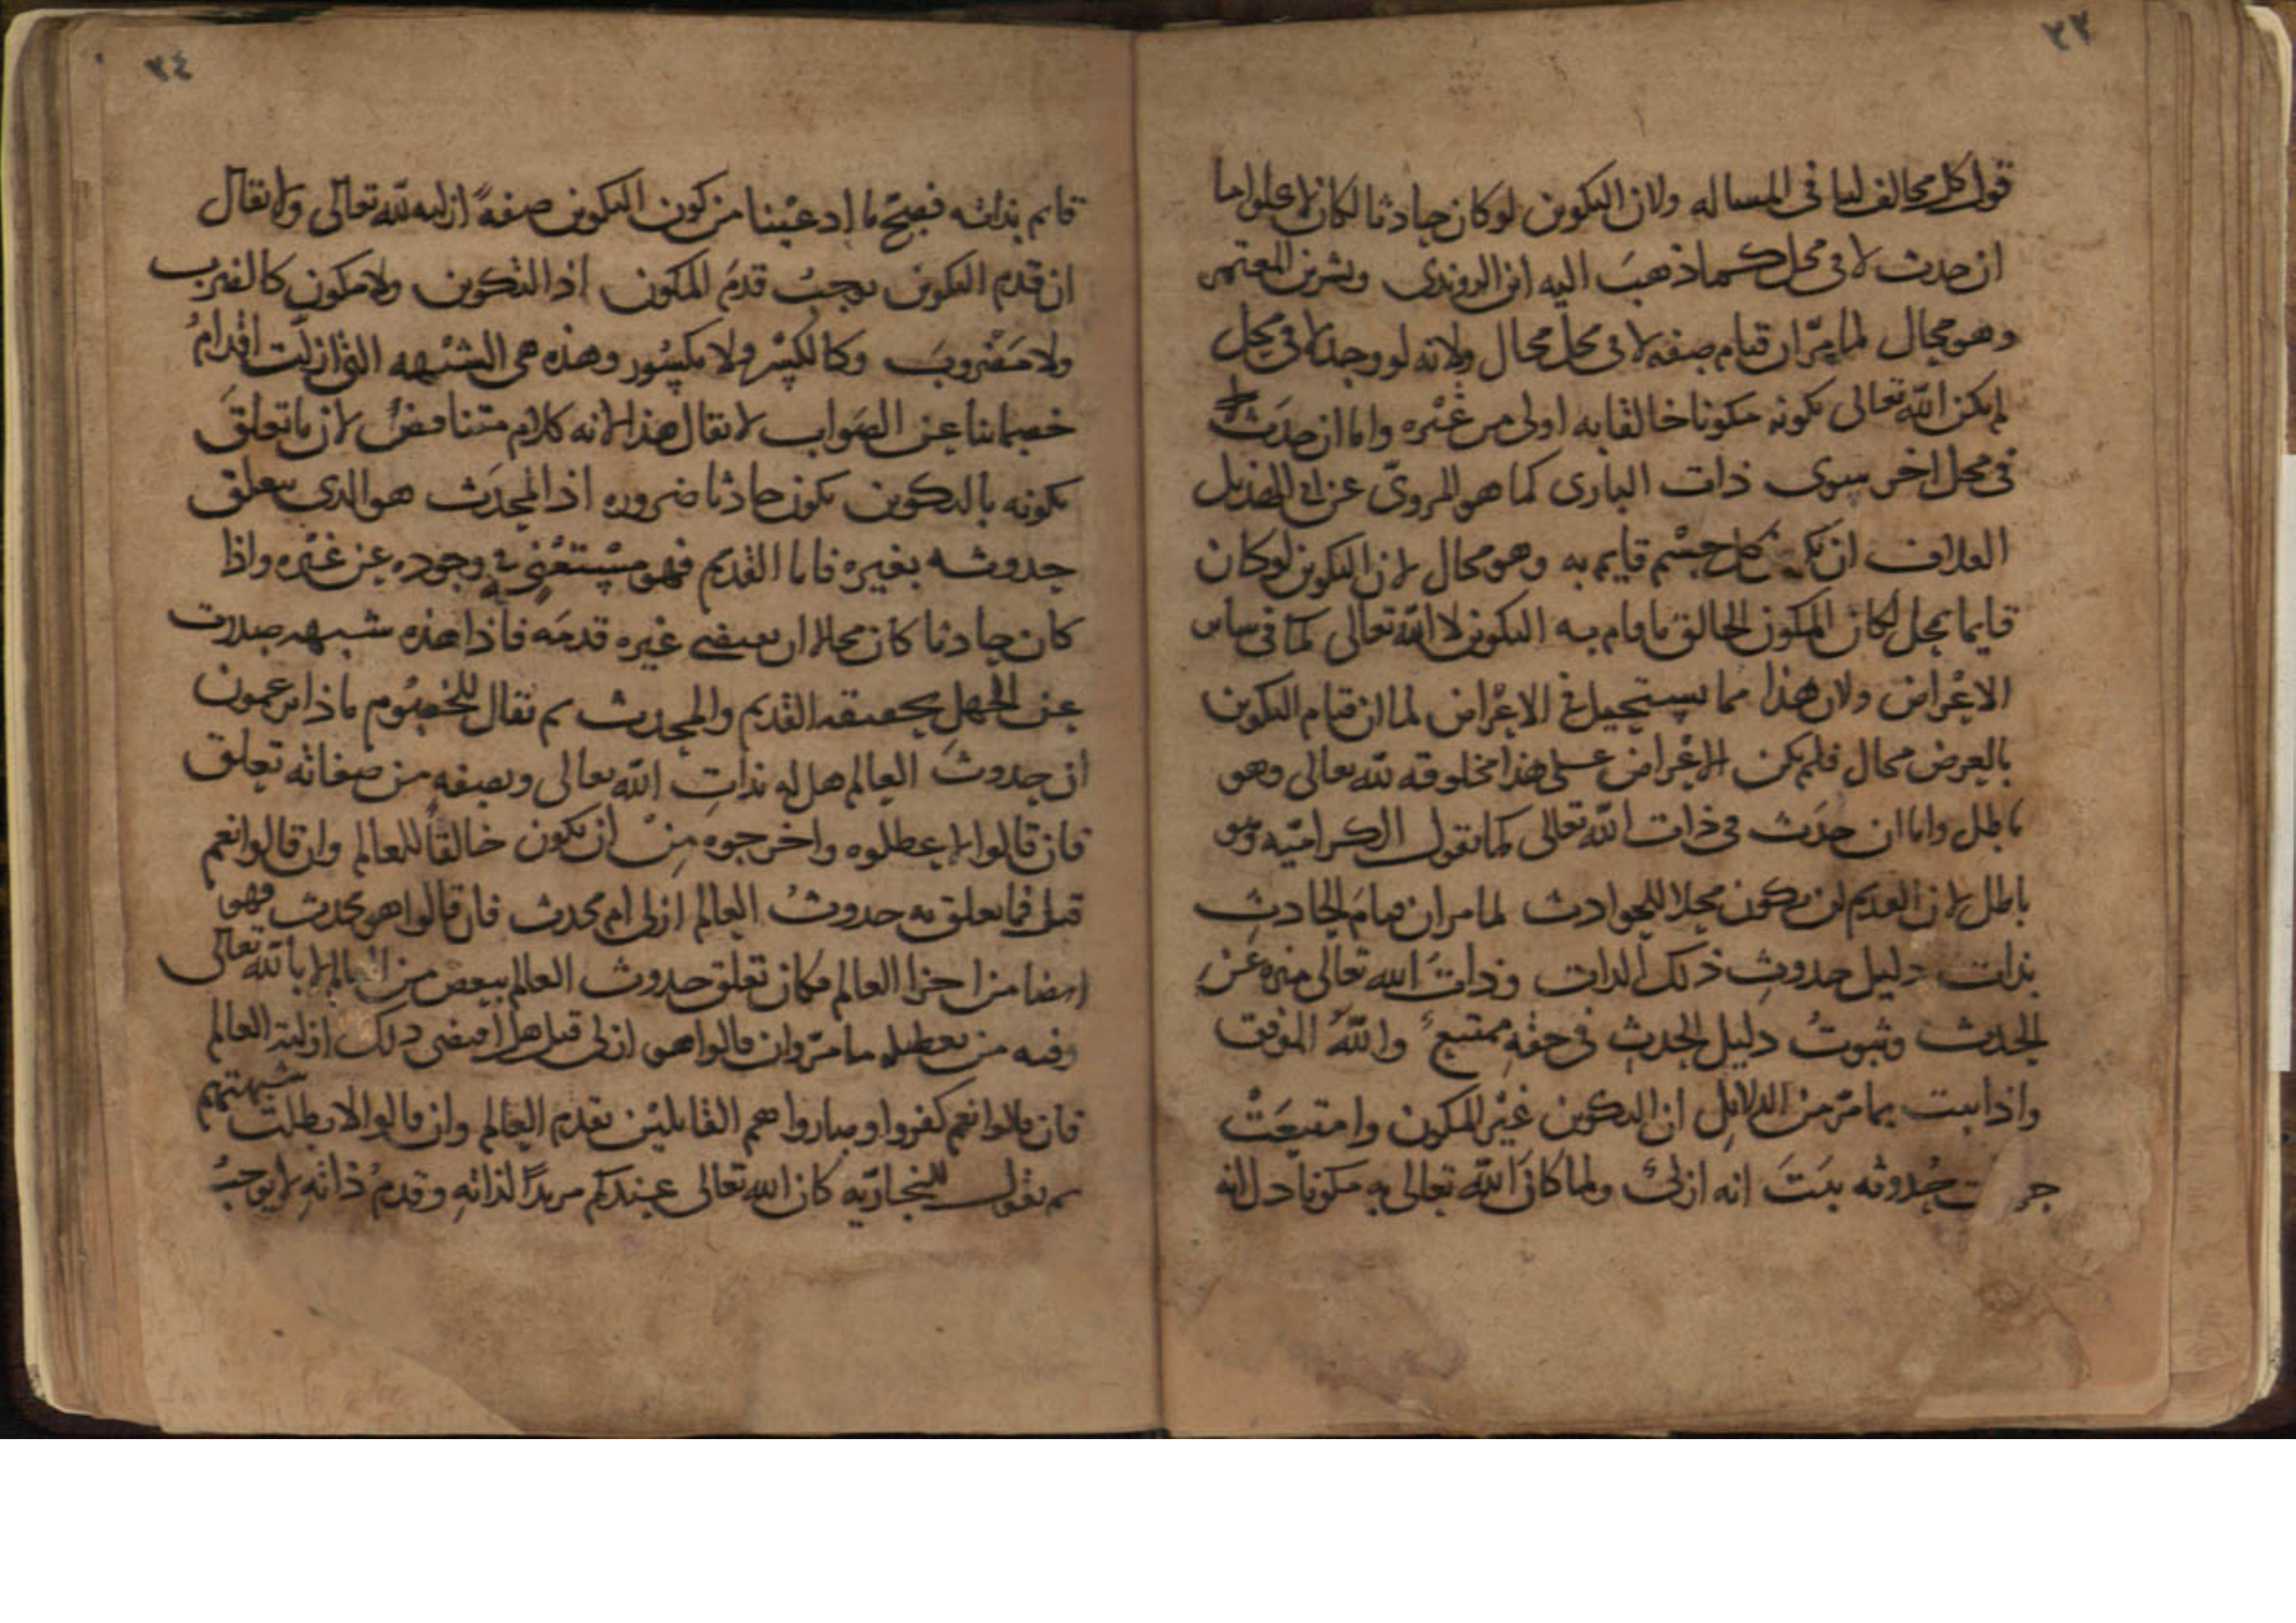 ٣٣
قول كل مخالف لنا في المساله ولان التكوين لو كان حادثا لكان لا يخلو اما
ان حدث لا في محل كما ذهب اليه ابن الروندى وبشر بن المعتمر
وهو محال لما مرّ ان قيام صفه لا في محل محال ولانه لو وجد لا في محل
لم يكن الله تعالى بكونه مكونا خالقا به اولى من غيره واما ان حدث
في محل اخر سوى ذات البارى كما هو المروىّ عن ابى الهذيل
العلاف ان كل جسم قايم به وهو محال لان التكوين لو كان
قايما بمحل لكان المكون الخالق ما قام به التكوين لا الله تعالى كما في ساير
الاعراض ولان هذا مما يستحيل في الاعراض لما ان قيام التكوين
بالعرض محال فلم يكن الاعراض على هذا مخلوقه لله تعالى وهو
باطل واما ان حدث في ذات الله تعالى كما تقول الكراميّه وهو
باطل لان القديم لن يكون محلا للحوادث لما مر ان قيام الحادث
بذات دليل حدوث ذلك الذات وذات الله تعالى منزه عن
الحدث وثبوت دليل الحدث في حقه ممتنع والله الموفق
واذا ثبت بما مرّ من الدلايل ان التكوين غير المكون وامتنعت
حدوثه ثبت انه ازلى ولما كان الله تعالى به مكونا دل انه
٣٤
قايم بذاته فصحّ ما ادعينا من كون التكوين صفةً ازليه لله تعالى ولا يقال
ان قدم التكوين يوجب قدم المكون اذ التكوين ولا مكون كالضرب
ولا مضروب وكالكسر ولا مكسور وهذه هى الشبهه التى ازلّت اقدام
خصمائنا عن الصواب لا يقال هذا لانه كلام متناقض لان ما تعلق
تكونه بالتكوين يكون حادثا ضروره اذ المحدث هو الذى يتعلق
حدوثه بغيره فاما القديم فهو مستغنى في وجوده عن غيره واذا
كان حادثا كان محالا ان يقتضى غيره قدمه فاذا هذه شبهه صدرت
عن الجهل بحقيقه القديم والمحدث ثم يقال للخصوم ماذا تزعمون
ان حدوث العالم هل له بذات الله تعالى وبصفه من صفاته تعلق
فان قالوا لا عطلوه واخرجوه من ان يكون خالقاً للعالم وان قالوا نعم
قيل فما تعلق به حدوث العالم ازلى ام محدث فان قالوا هو محدث فهو
ايضا من اجزا العالم فكان تعلق حدوث العالم ببعض من العالم لا بالله تعالى
وفيه من تعطيله ما مرّ وان قالوا هو ازلى قيل هل اقتضى ذلك ازلية العالم
فان قالوا نعم كفروا وصاروا هم القايلين بقدم العالم وان قالوا لا بطلت شبهتهم
ثم نقول للنجاريّه كان الله تعالى عندكم مريدًا لذاته وقدم ذاته لا يوجب